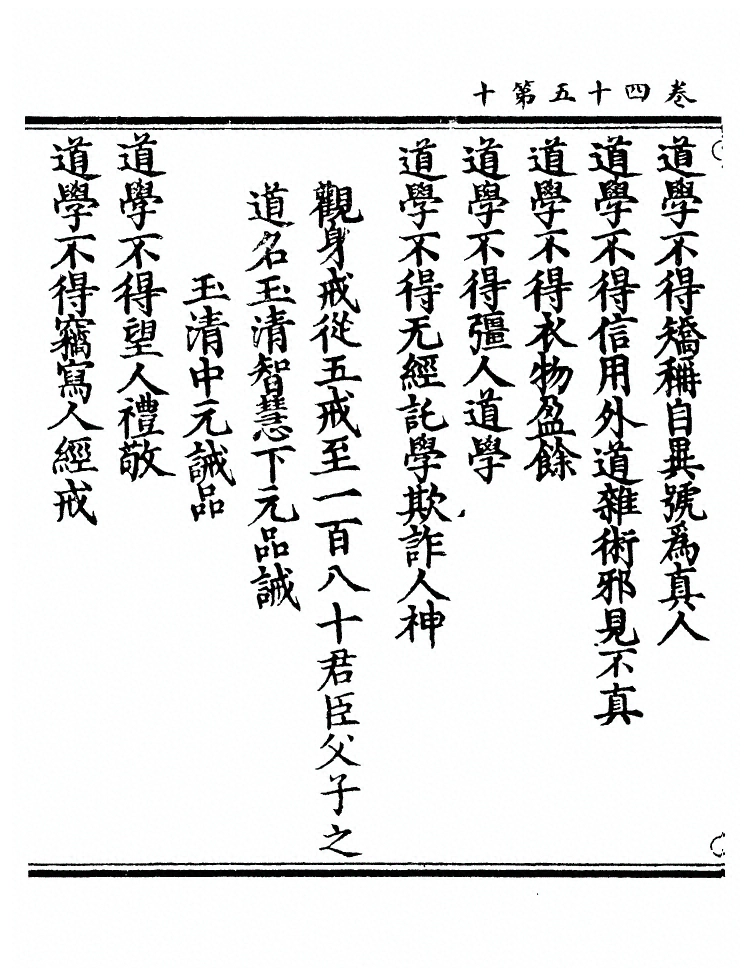 卷四十五第十
道學不得矯稱自異號為真人
道學不得信用外道雜術邪見不真
道學不得衣物盈餘
道學不得彊人道學
道學不得无經託學欺詐人神
觀身戒從五戒至一百八十君臣父子之
道名玉清智慧下元品誡
玉清中元誡品
道學不得望人禮敬
道學不得竊寫人經戒